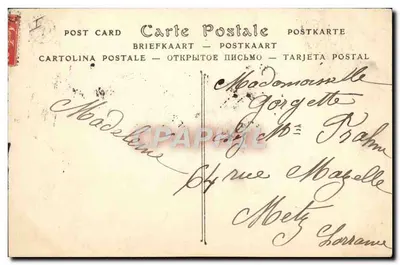 POST CARD Carte Postale POSTKARTE
BRIEFKAART — POSTKAART
CARTOLINA POSTALE — ОТКРЫТОЕ ПИСЬМО — TARJETA POSTAL
Madeleine
Mademoiselle
Gorgette
64 rue Mazelle
Metz
Lorraine